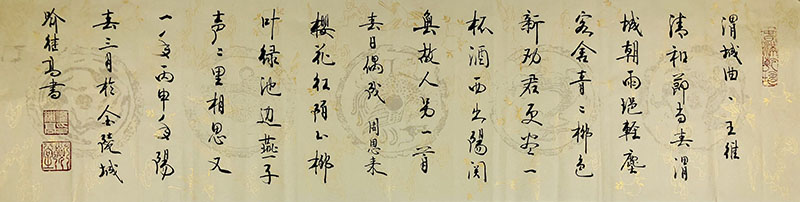 渭城曲、王维
清和節当春渭
城朝雨浥輕塵
客舍青々柳色
新劝君更尽一
杯酒西出陽关
無故人另一首
春日偶成 周恩来
樱花红陌上柳
叶绿池边燕子
声々里相思又
一年丙申年陽
春三月於金陵城
高书